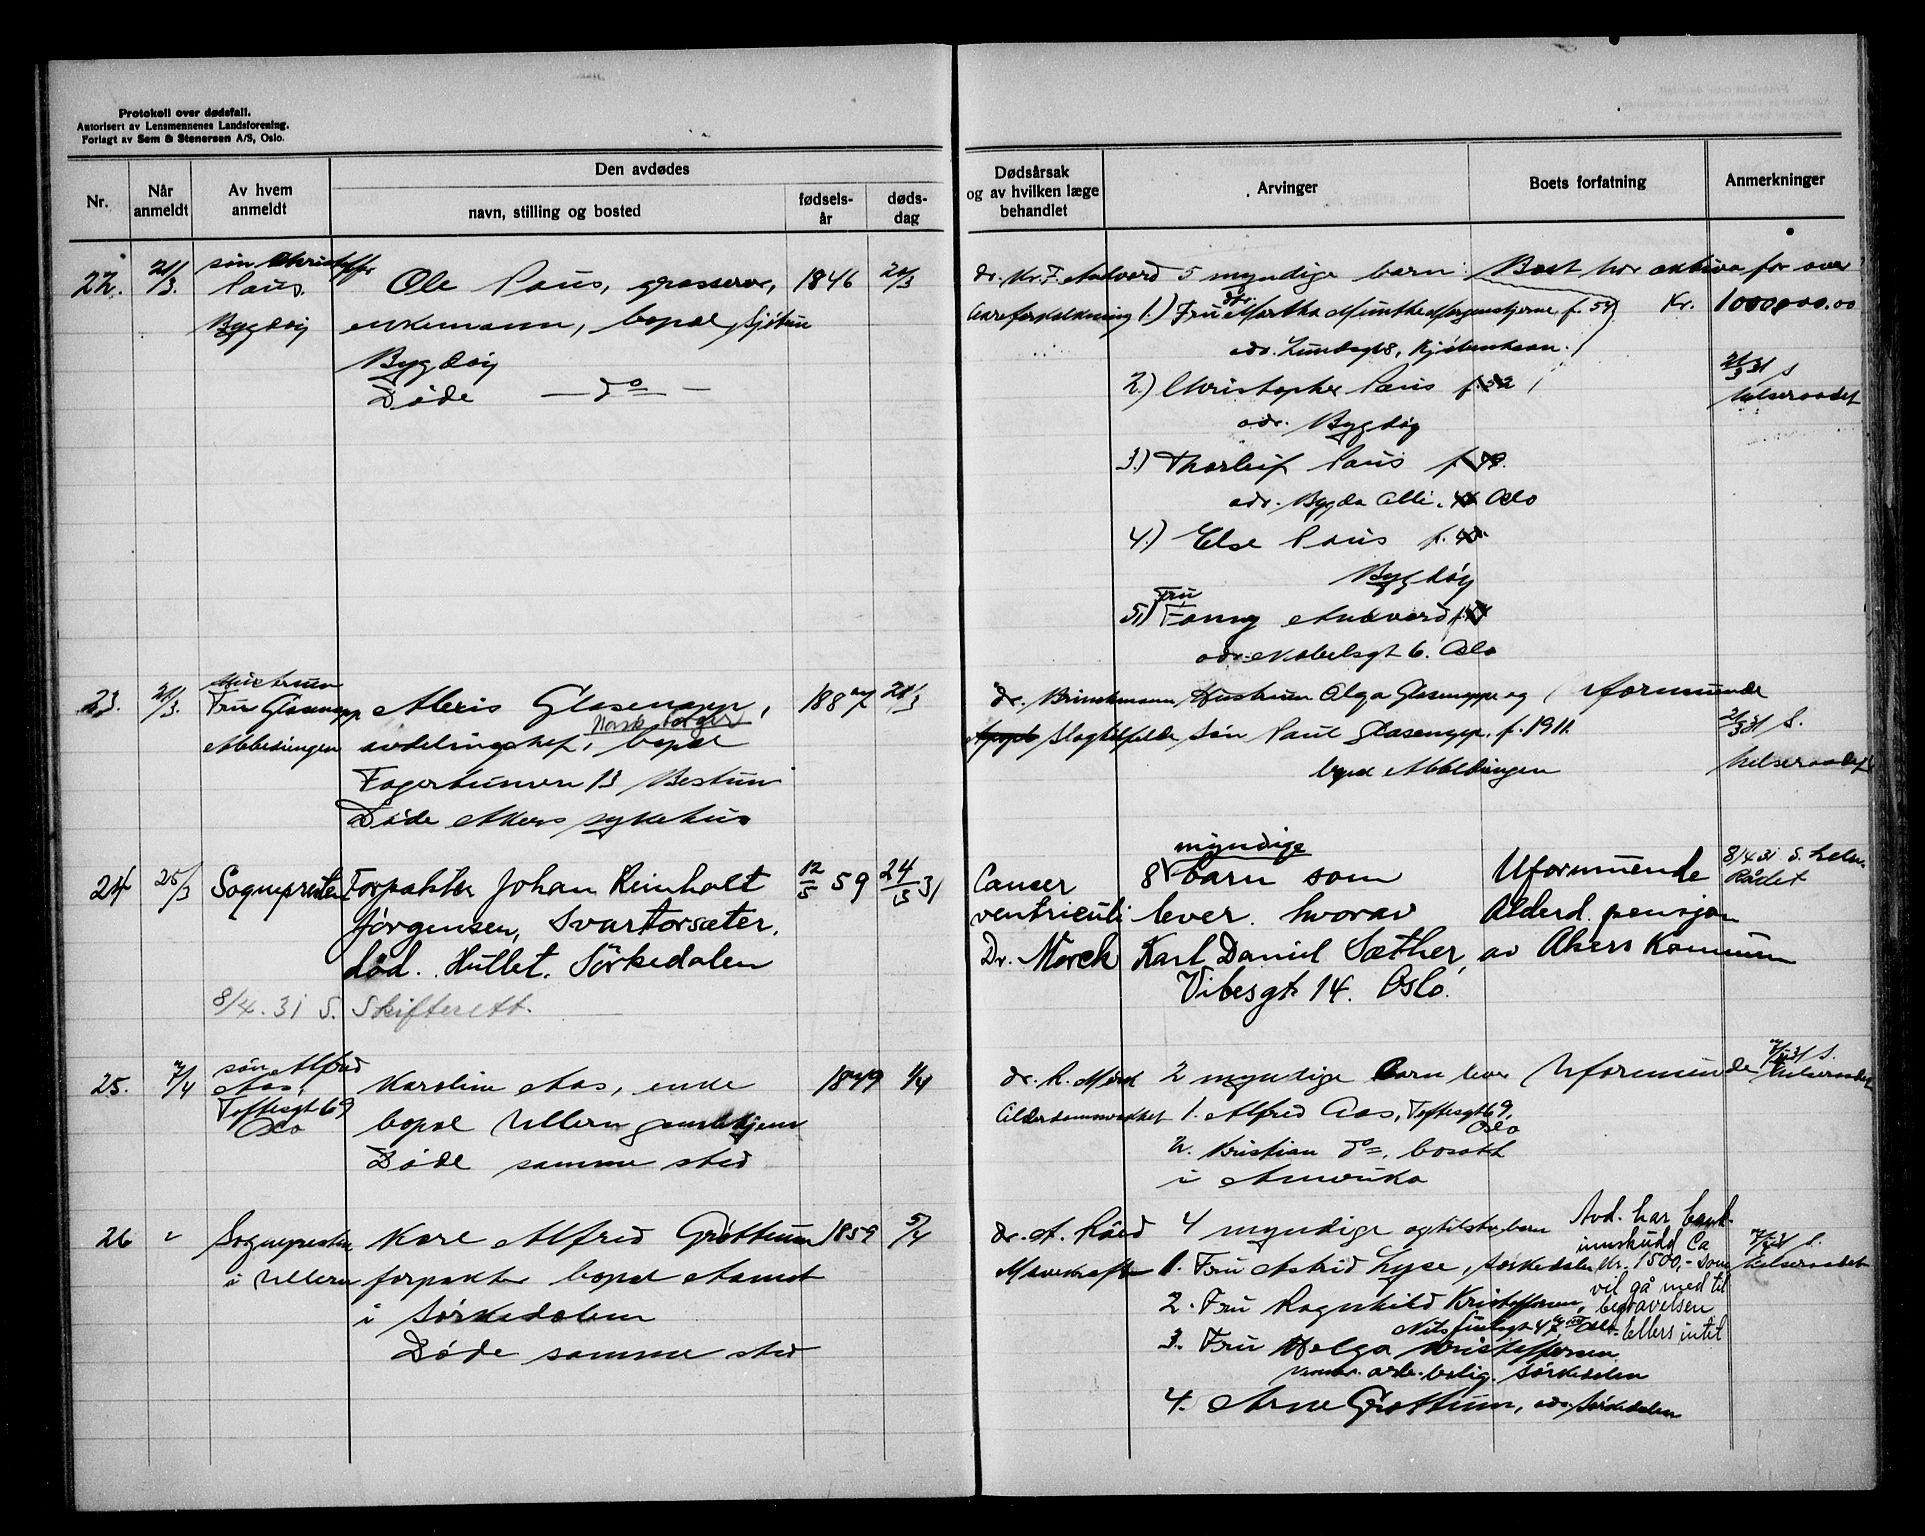 Protokoll over dødsfall.
Autorisert av Lensmennenes Landsforening.
Forlagt av Sem & Stenersen A/S, Oslo.
Nr.
Når anmeldt
Av hvem anmeldt
Den avdødes
navn, stilling og bosted
fødsels-år
døds-dag
Dødsårsak og av hvilken læge behandlet
Arvinger
Boets forfatning
Anmerkninger
22.
21/3.
søn Christoffer
Paus.
Bygdøy
Ole Paus, grosserer,
enkemann, bopæl
Bygdøy
Døde — do —
1846
20/3
dr. Kr. F. Andvord
Aareforkalkning
5 myndige barn:
1.) Fru Martha Munthe Morgenstjerne f.
adr. Kjøbenhavn.
2.) Christopher Paus f.
adr. Bygdøy
3.) Thorleif Paus f.
adr. Bygdø Alle. Oslo
4.) Else Paus f.
Bygdøy
5.) Fru Fanny Andvord f.
adr. Nobelsgt 6. Oslo
Boet har aktiva for over
Kr. 1000000.00
21/3 31 S
helseraadet
23.
21/3.
Hustruen
Fru Glasenapp
Abbedïngen
Alexis Glasenapp,
Norsk borger
avdelingschef, bopæl
13 Bestum
Døde Akers sykehus
1887
21/3
dr. Brinchmann
Slagtilfelde
Hustruen Olga Glasenapp og
Søn Paul Glasenapp. f. 1911.
bopæl Abbedingen
Uformuende
21/3 31 S.
helseraadet
24
25/3
Sognepresten
Forpakter Johan Reinholt
Jørgensen, Svartorsæter.
død. Hullet. Sörkedalen
8/4. 31 S. Skifterett.
12/5 59
24/3 31
Cancer
ventriculi
Dr. Mørck
myndige
8 barn som
lever. hvorav
Karl Daniel Sæther,
Vibesgt. 14. Oslo.
Uformuende
Alderd. pensjon
av Akers Kommune
8/4 31 S. helse
Rådet
25.
7/4
søn Alfred
Aas,
Toftesgt 69
Oslo
Karoline Aas, enke
bopæl Ullern gamlehjem
Døde samme sted
1849
1/4
dr. R. Mørck
Alderdomssvakhet
2 myndige barn lever
1. Alfred Aas, Toftesgt 69,
Oslo
2. Kristian do, bosatt
i Amerika
Uformuende
7/4 31 S.
helseraadet
26
"
Sognepresten
i Ullern
Karl Alfred Grøttum
forpakter bopæl Aamot
i Sørkedalen
Døde samme sted
1859
5/4
dr. A. Röed
Mavekraft
4 myndige ektefødte barn
1. Fru Astrid Lyse, Sørkedalen
2. Fru Ragnhild Kristoffersen,
Oslo.
3. Fru Helga Kristoffersen
Sørkedalen
4. Arne Grøttum, adr. Sørkedalen
Avd. har bank-
innskudd Ca
Kr. 1500,- som
vil gå med til
begravelsen
Ellers intet
7/4 31 S.
helseraadet